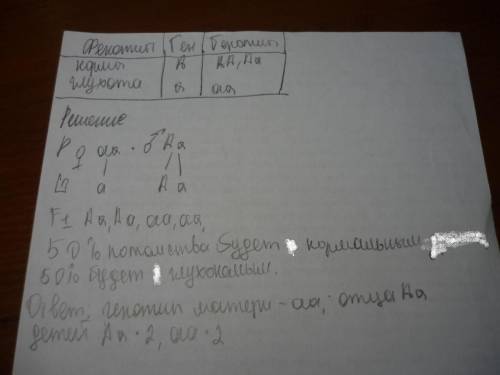 Фенотип | Ген | Генотип
норма | А | АА, Аа
глухота | а | аа
Решение
Р ♀ аа · ♂ Аа
G а А а
F1 Аа, Аа, аа, аа,
50% потомства будет нормальным
50% будет глухонемым.
Ответ: генотип матери - аа, отца Аа
детей Аа · 2, аа · 2